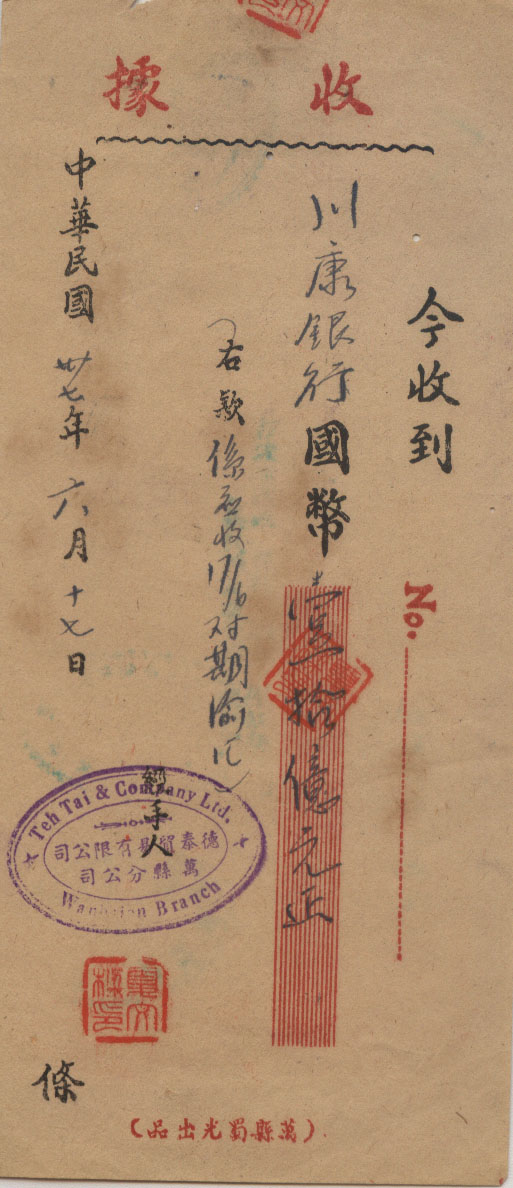 收據
今收到
No.
川康銀行國幣壹拾億元正
右款係應收17/6对期渝汇
中華民國卅七年六月十七日
經手人
Teh Tai & Company Ltd.
德泰貿易有限公司
萬縣分公司
Wanhsien Branch
條
(萬縣蜀光出品)